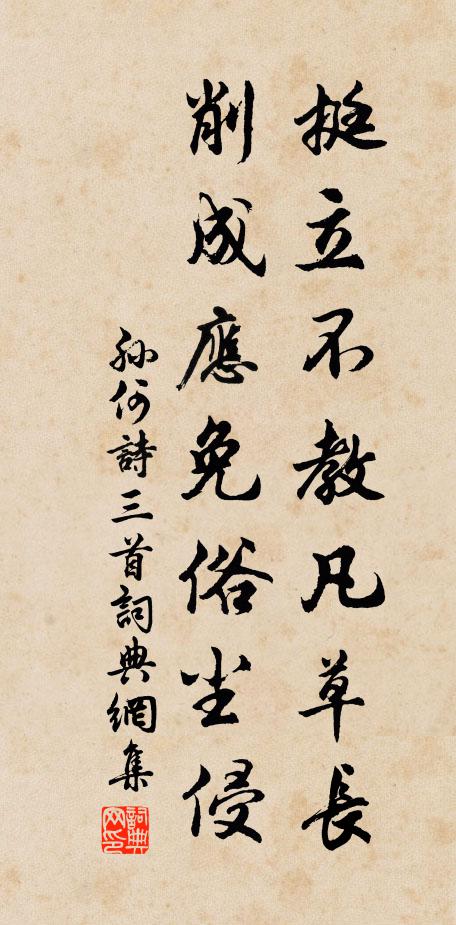 挺立不教凡草長
削成應免俗尘侵
孙何詩三首詞典網集
詞典网印